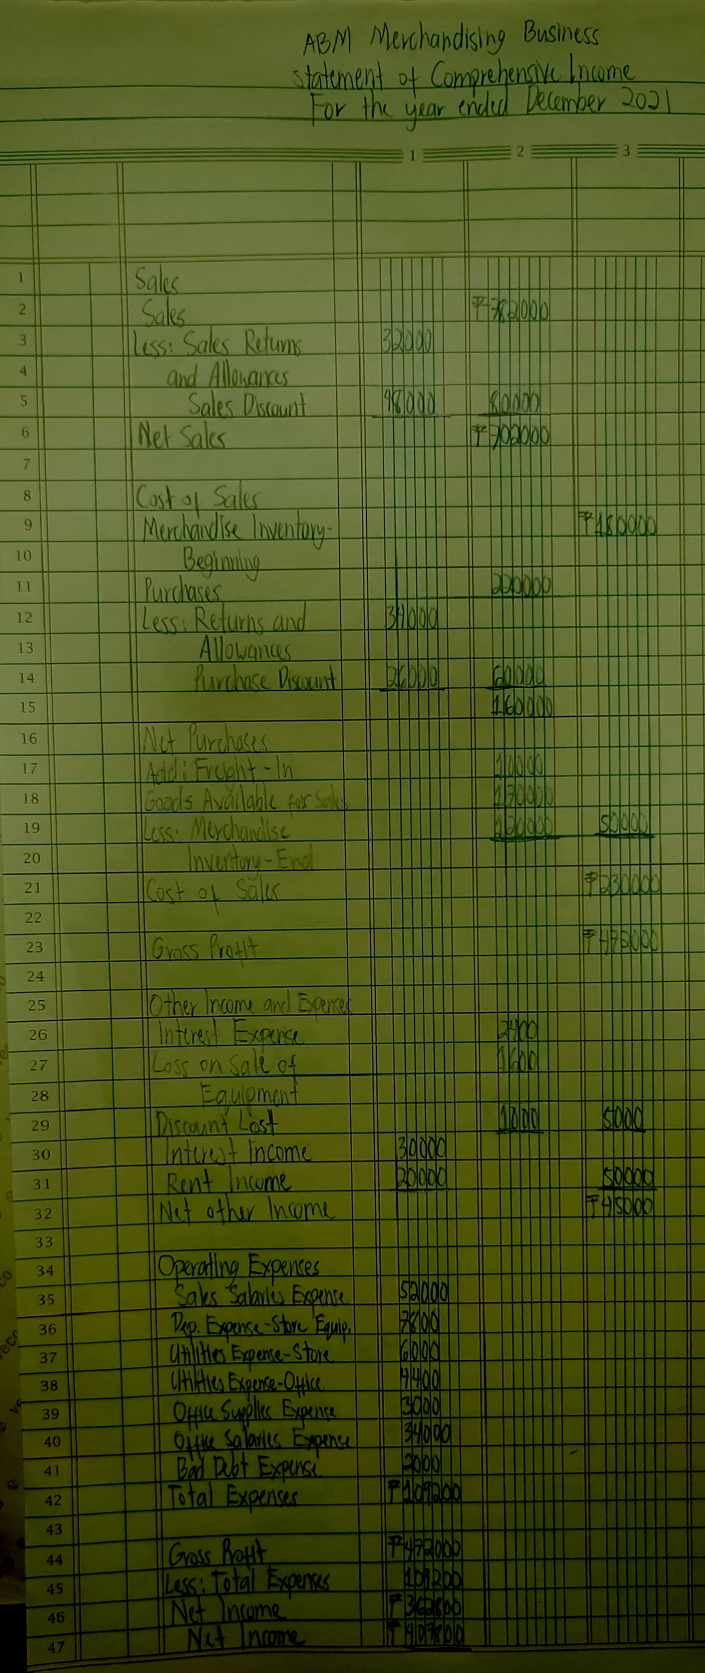 ABM Merchandising Business
Statement of Comprehensive Income
For the year ended December 2021
1 2 3
1 Sales
2 Sales ₱782000
3 Less: Sales Returns 32000
4 and Allowances
5 Sales Discount 48000 80000
6 Net Sales ₱702000
7
8 Cost of Sales
9 Merchandise Inventory- ₱180000
10 Beginning
11 Purchases 220000
12 Less: Returns and 34000
13 Allowances
14 Purchase Discount 26000 60000
15 160000
16 Net Purchases
17 Add: Freight-In 10000
18 Goods Available for Sale 170000
19 Less: Merchandise 120000 50000
20 Inventory-End
21 Cost of Sales ₱230000
22
23 Gross Profit
24
25 Other Income and
26 Interest Expense 2400
27 Loss on Sale of 1600
28 Equipment
29 Discount Lost 1000 5000
30 Interest Income 30000
31 Rent Income 20000 50000
32 Net other Income ₱45000
33
34 Operating Expences
35 Sales Salaries Expense 52000
36 Dep. Expense-Store Equip. 7800
37 Utilities Expense-Store 6000
38 Utilities Expense-Office 4400
39 Office Supplies Expense 3000
40 Office Salaries Expense 34000
41 Bad Debt Expense 2000
42 Total Expenses ₱109200
43
44 Gross Profit ₱472000
45 Less: Total Expenses 109200
46 Net Income ₱362800
47 Net Income ₱407800